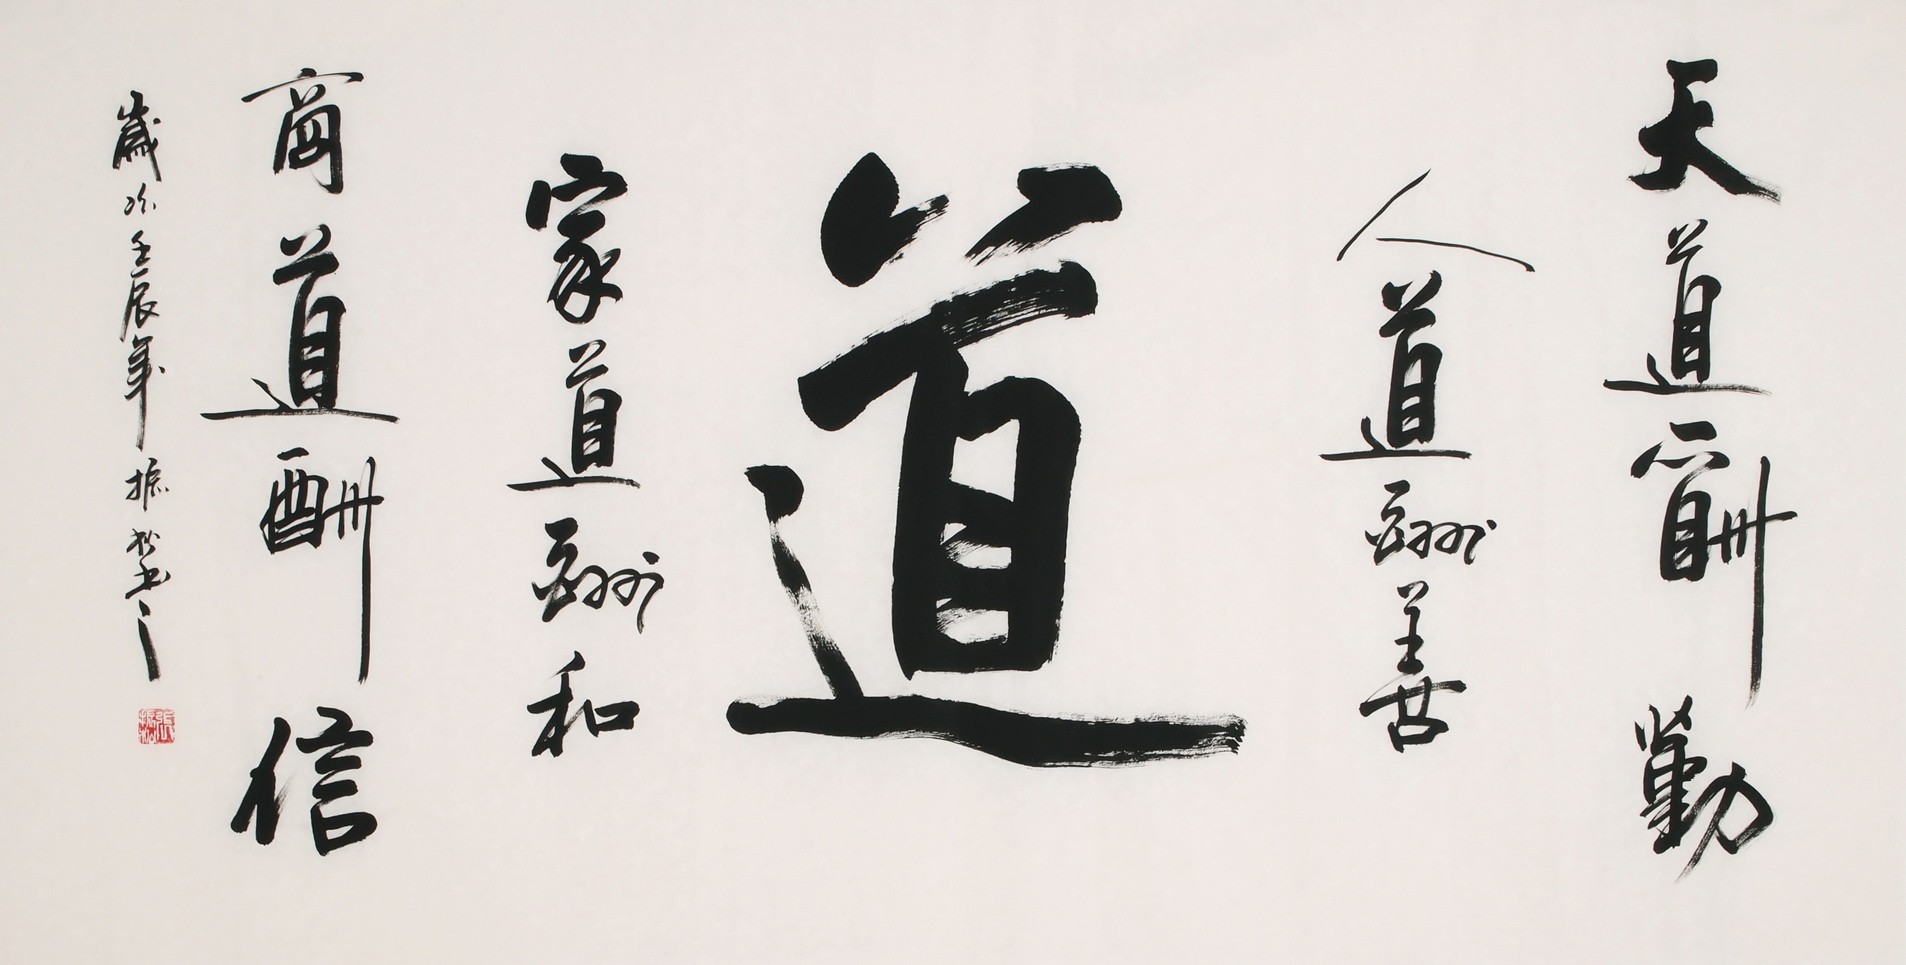 天道酬勤
人道酬善
道
家道酬和
商道酬信
歲次壬辰年振松書之
張振松